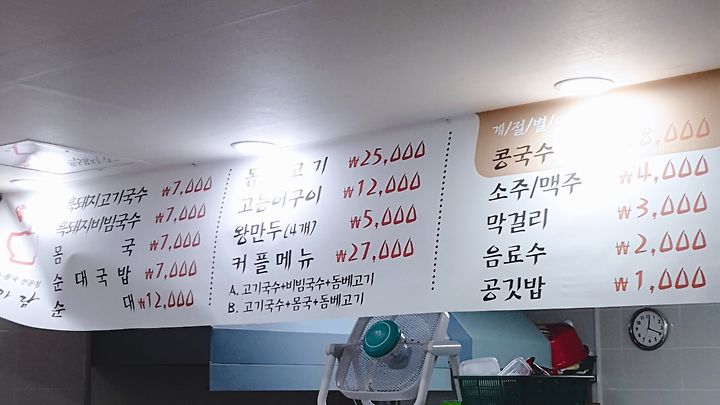 흑돼지고기국수 ₩7,000
흑돼지비빔국수 ₩7,000
몸국 ₩7,000
순대국밥 ₩7,000
순대 ₩12,000
고기 ₩25,000
고등어구이 ₩12,000
왕만두(4개) ₩5,000
커플메뉴 ₩27,000
A. 고기국수+비빔국수+돔베고기
B. 고기국수+몸국+돔베고기
계/절/별/
콩국수 8,000
소주/맥주 ₩4,000
막걸리 ₩3,000
음료수 ₩2,000
공깃밥 ₩1,000